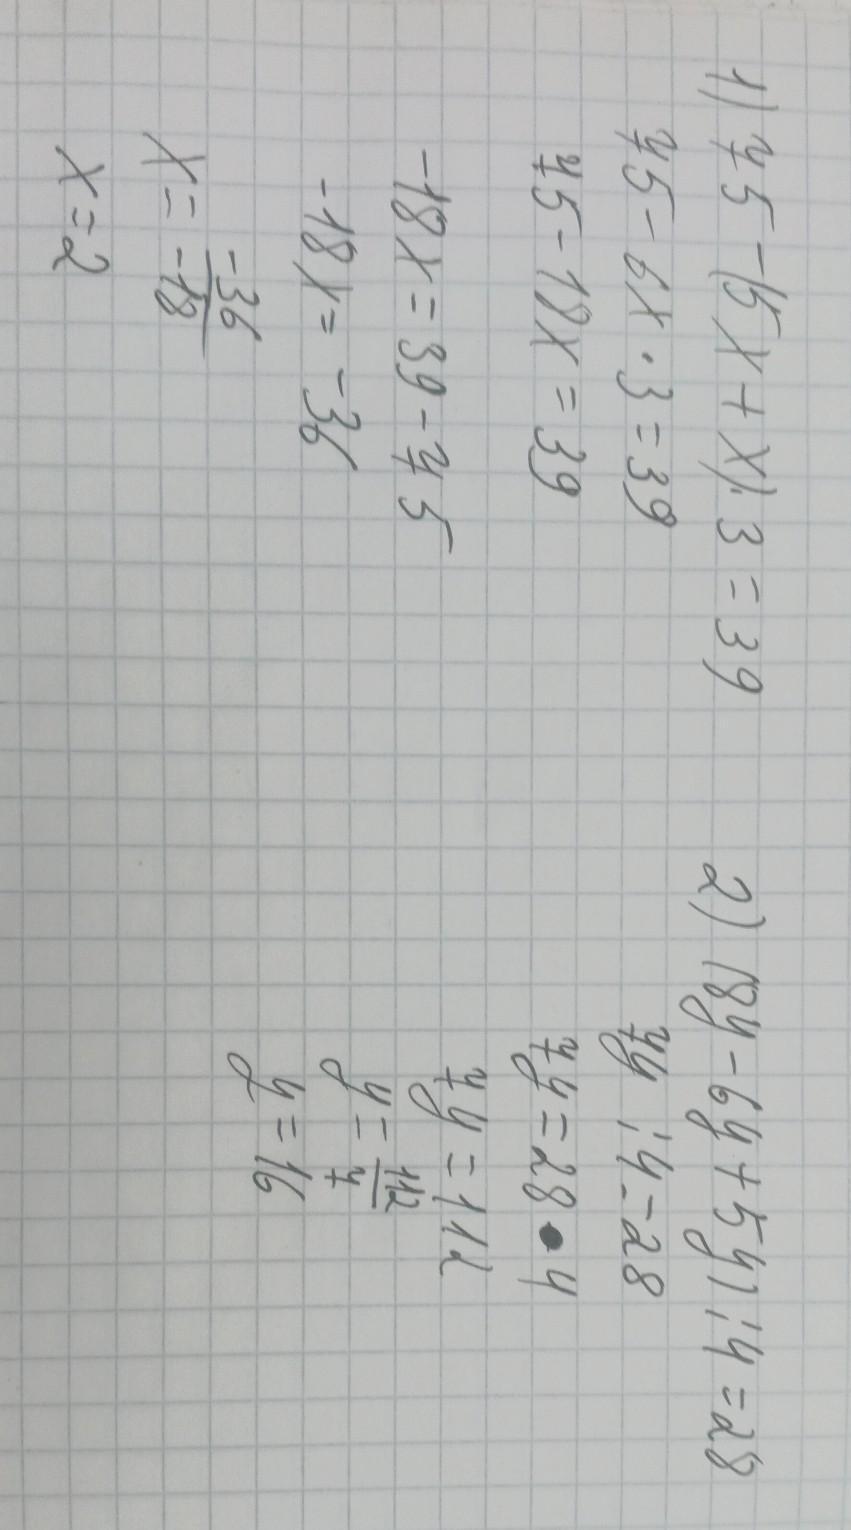 1) 75-(5x+x)·3=39
75-6x·3=39
75-18x=39
-18x=39-75
-18x=-36
x=-36/-18
x=2
2) (8y-6y+5y):4=28
7y:4=28
7y=28·4
7y=112
y=112/7
y=16